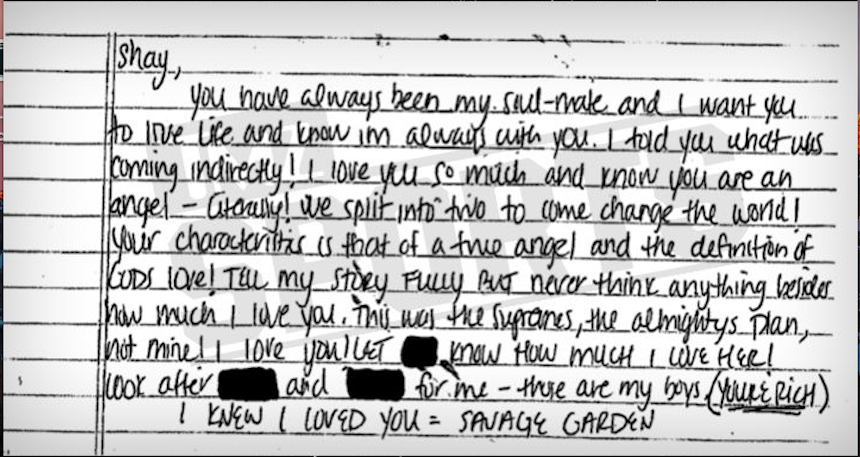 Shay,
you have always been my soul-mate and I want you
to live life and know im always with you. I told you what was
coming indirectly! I love you so much and know you are an
angel - literally! We split into two to come change the world!
your characteristics is that of a true angel and the definition of
GODS love! TELL my story FULLY BUT never think anything besides
how much I love you. This was the supremes, the almightys plan,
not mine! I love you! LET know HOW MUCH I LOVE HER!
look after and for me - those are my boys (YOURE RICH)
I KNEW I LOVED YOU = SAVAGE GARDEN
TMZ
SPORTS